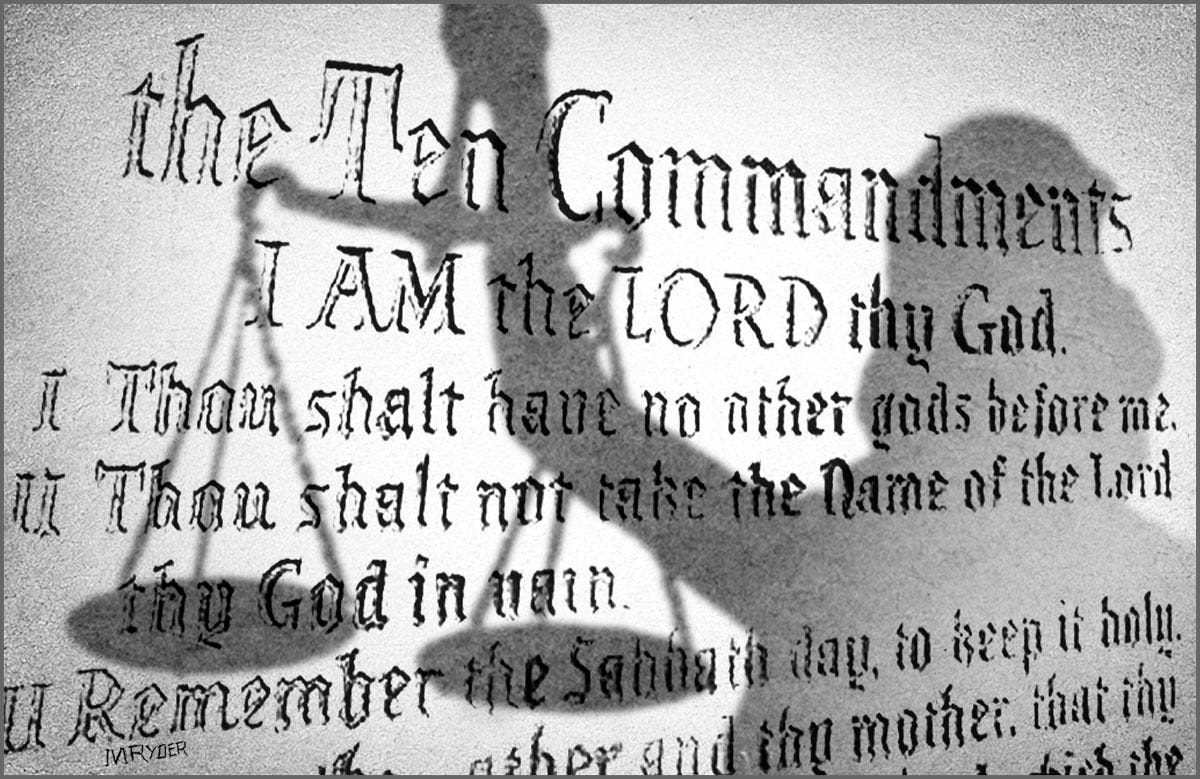 the Ten Commandments
I AM the LORD thy God.
I Thou shalt have no other gods before me.
II Thou shalt not take the Name of the Lord
thy God in vain.
Remember the Sabbath day, to keep it holy.
father and thy mother, that thy
the
MRYDER